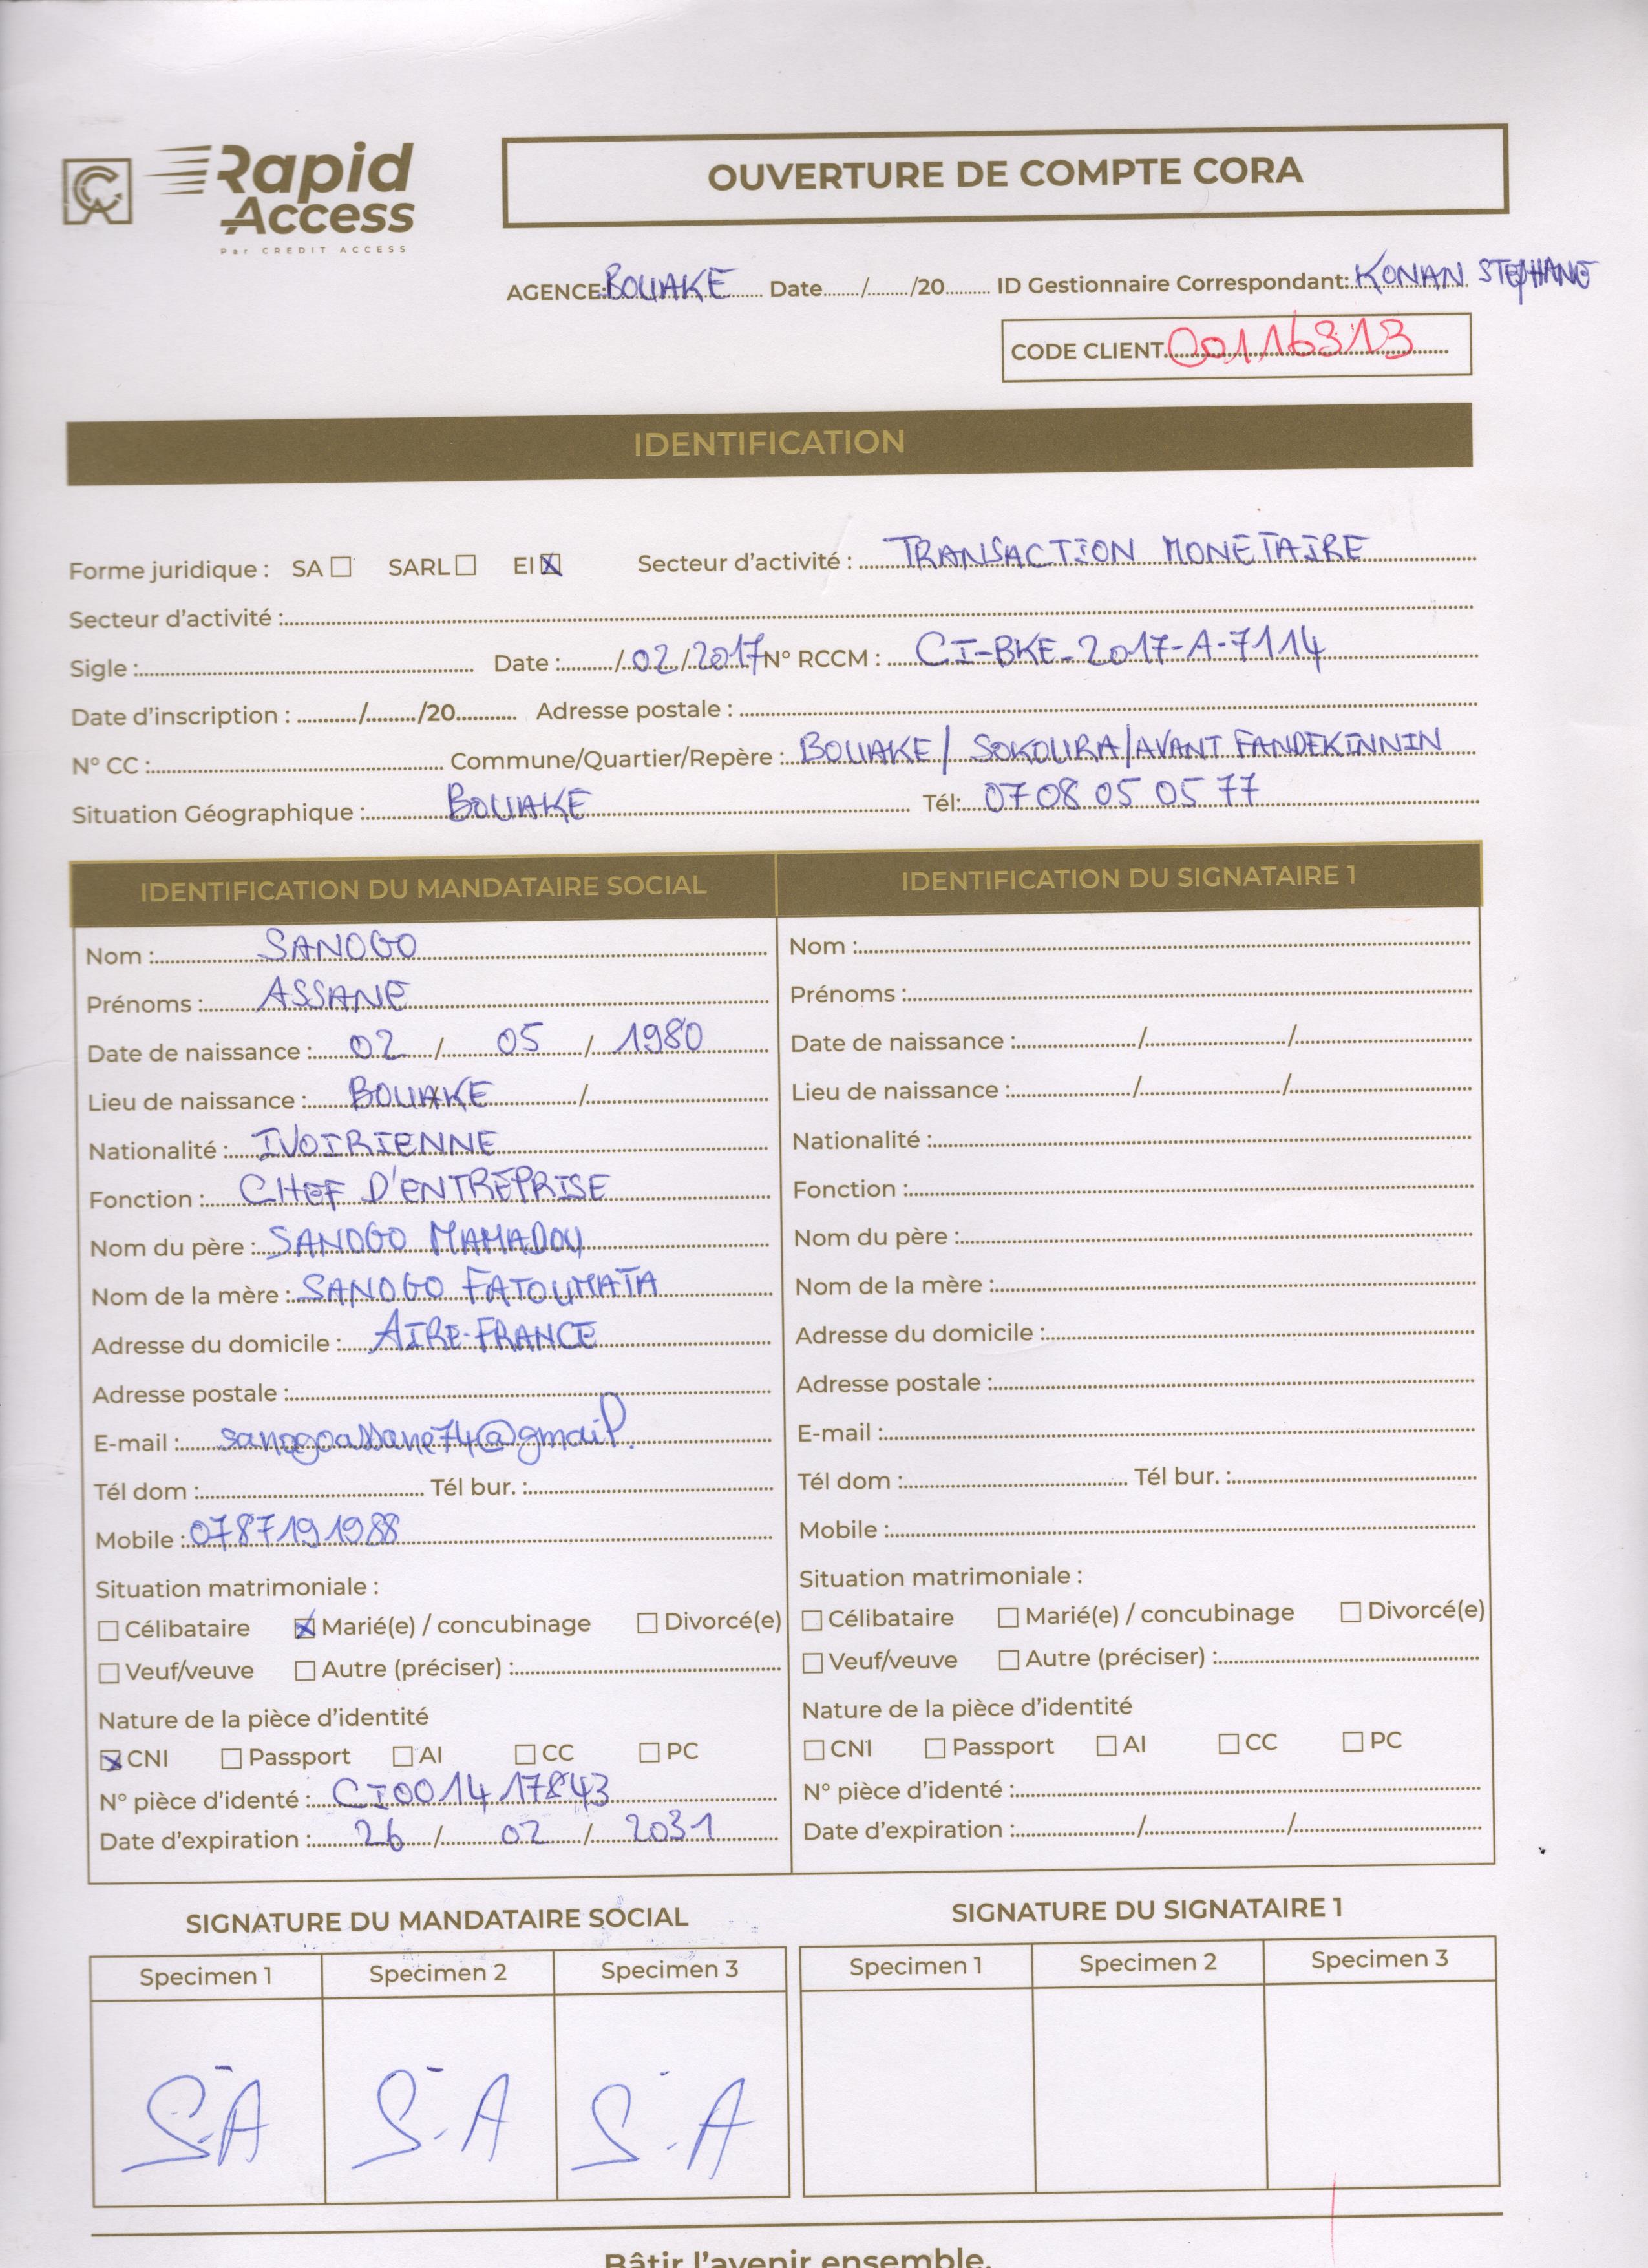 Rapid
Access
Par CREDIT ACCESS
OUVERTURE DE COMPTE CORA
AGENCE: BOUAKE Date / /20 ID Gestionnaire Correspondant: KONAN STEPHANE
CODE CLIENT 00116313
IDENTIFICATION
Forme juridique : SA ☐ SARL ☐ EI ☒ Secteur d'activité : TRANSACTION MONETAIRE
Secteur d'activité :
Sigle : Date : / 02 / 2017 N° RCCM : CI-BKE-2017-A-7114
Date d'inscription : / /20 Adresse postale :
N° CC : Commune/Quartier/Repère : BOUAKE / SOKOURA / AVANT FANDEKINNIN
Situation Géographique : BOUAKE Tél: 07 08 05 05 77
IDENTIFICATION DU MANDATAIRE SOCIAL
Nom : SANOGO
Prénoms : ASSANE
Date de naissance : 02 / 05 / 1980
Lieu de naissance : BOUAKE /
Nationalité : IVOIRIENNE
Fonction : CHEF D'ENTREPRISE
Nom du père : SANOGO MAMADOU
Nom de la mère : SANOGO FATOUMATA
Adresse du domicile : AIRE-FRANCE
Adresse postale :
E-mail : sanogoassane74@gmail.
Tél dom : Tél bur. :
Mobile : 0787191988
Situation matrimoniale :
☐ Célibataire ☒ Marié(e) / concubinage ☐ Divorcé(e)
☐ Veuf/veuve ☐ Autre (préciser) :
Nature de la pièce d'identité
☒ CNI ☐ Passport ☐ AI ☐ CC ☐ PC
N° pièce d'identé : CI001417843
Date d'expiration : 26 / 02 / 2031
IDENTIFICATION DU SIGNATAIRE 1
Nom :
Prénoms :
Date de naissance : / /
Lieu de naissance : / /
Nationalité :
Fonction :
Nom du père :
Nom de la mère :
Adresse du domicile :
Adresse postale :
E-mail :
Tél dom : Tél bur. :
Mobile :
Situation matrimoniale :
☐ Célibataire ☐ Marié(e) / concubinage ☐ Divorcé(e)
☐ Veuf/veuve ☐ Autre (préciser) :
Nature de la pièce d'identité
☐ CNI ☐ Passport ☐ AI ☐ CC ☐ PC
N° pièce d'identé :
Date d'expiration : / /
SIGNATURE DU MANDATAIRE SOCIAL
Specimen 1 Specimen 2 Specimen 3
S.A S.A S.A
SIGNATURE DU SIGNATAIRE 1
Specimen 1 Specimen 2 Specimen 3
Bâtir l'avenir ensemble.